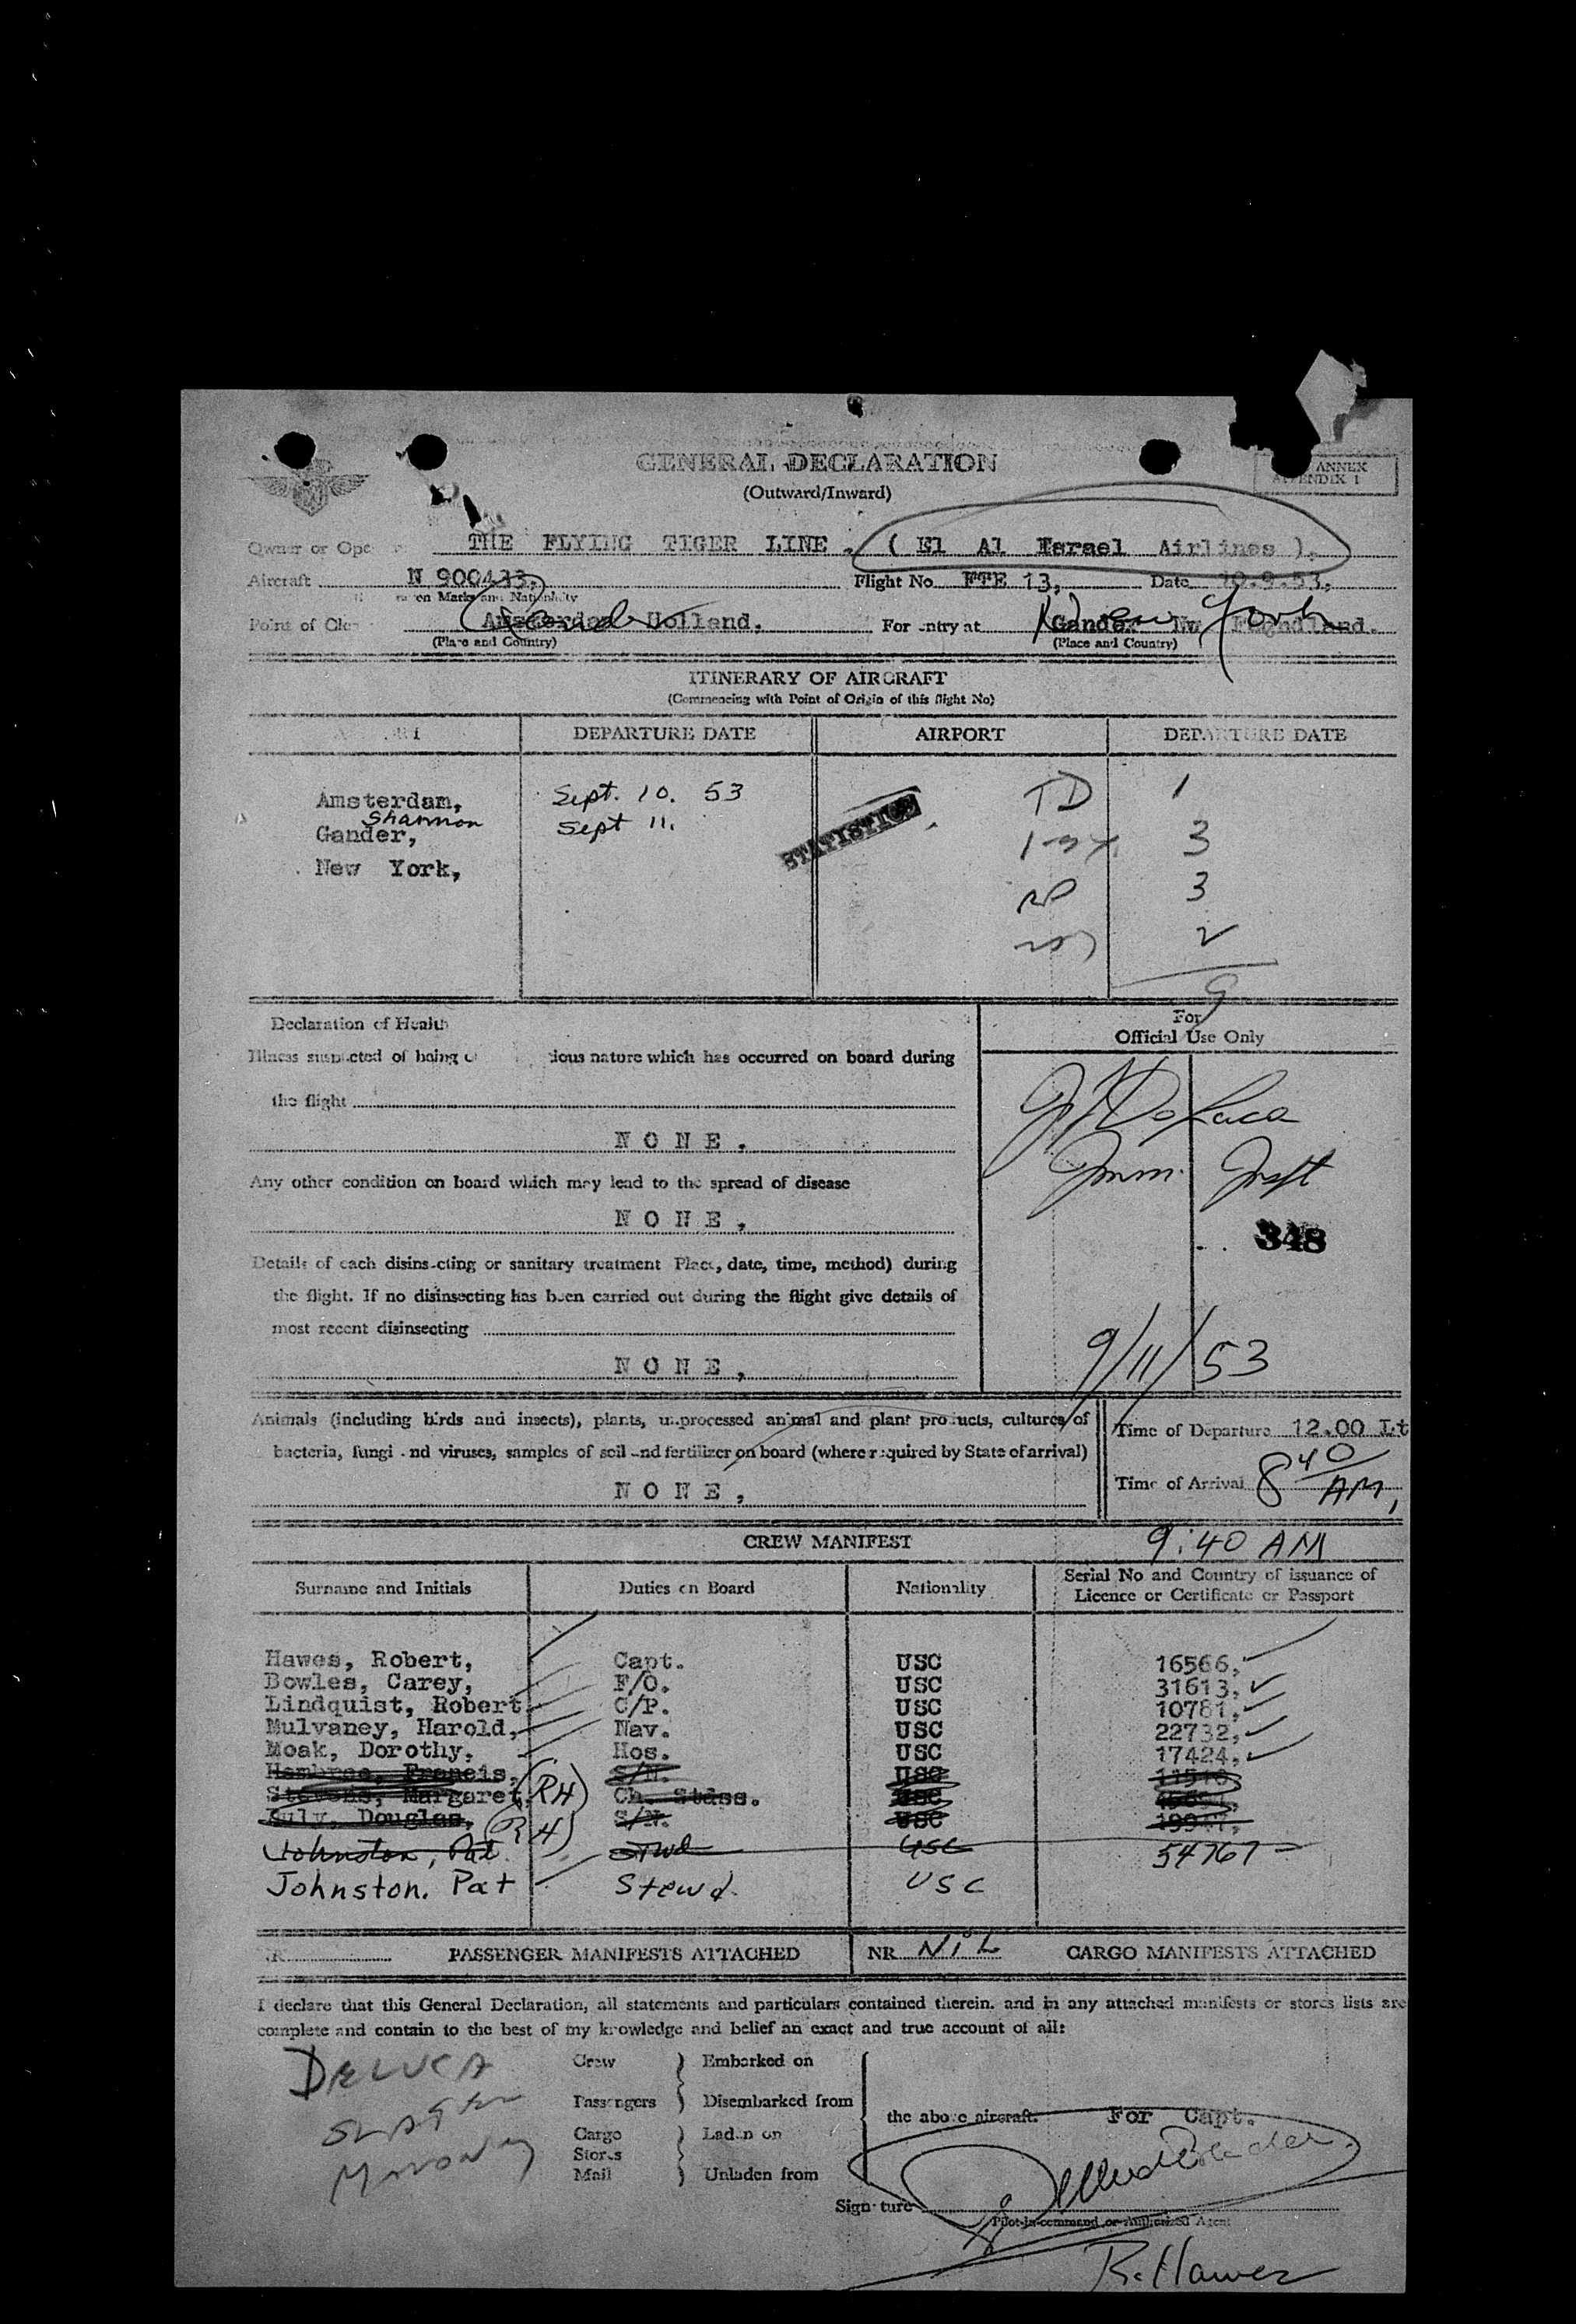 GENERAL DECLARATION
(Outward/Inward)
ANNEX
APPENDIX 1
Owner or Ope THE FLYING TIGER LINE. ( El Al Israel Airlines ).
Aircraft N 900433. Flight No. FTE 13, Date 10.9.53.
en Marks and Nationality
Point of Cle Amsterdam Holland. For entry at Gander New York
(Place and Country) (Place and Country)
ITINERARY OF AIRCRAFT
(Commencing with Point of Origin of this flight No)
DEPARTURE DATE AIRPORT DEPARTURE DATE
Amsterdam, Sept. 10. 53 TD 1
Shannon Sept 11.
Gander, 3
New York, 3
STATISTICS
2
9
Declaration of Health
For
Official Use Only
Illness suspected of being of ious nature which has occurred on board during
the flight
N O N E .
Any other condition on board which may lead to the spread of disease
N O N E ,
Imm. Inspt
348
Details of each disinsecting or sanitary treatment Place, date, time, method) during
the flight. If no disinsecting has been carried out during the flight give details of
most recent disinsecting
N O N E ,
9/11/53
Animals (including birds and insects), plants, unprocessed animal and plant products, cultures of
bacteria, fungi and viruses, samples of soil and fertilizer on board (where required by State of arrival)
N O N E ,
Time of Departure 12.00 Lt
Time of Arrival 8 40 AM,
CREW MANIFEST 9:40 AM
Surname and Initials Duties on Board Nationality Serial No and Country of issuance of
Licence or Certificate or Passport
Hawes, Robert, Capt. USC 16566,
Bowles, Carey, F/O. USC 31613,
Lindquist, Robert C/P. USC 10781,
Mulvaney, Harold, Nav. USC 22732,
Moak, Dorothy, Hos. USC 17424,
Francis, S/N. USC
Stevens, Margaret, (RH) Ch. Stdss. USC
Douglas, (RH) S/N. USC
Johnston, Pat. Stwd USC 54767
Johnston. Pat Stewd. USC
PASSENGER MANIFESTS ATTACHED NR NiL CARGO MANIFESTS ATTACHED
I declare that this General Declaration, all statements and particulars contained therein. and in any attached manifests or stores lists are
complete and contain to the best of my knowledge and belief an exact and true account of all:
DELUCA
Crew Embarked on
Passengers Disembarked from
the above aircraft. For Capt.
Cargo Laden on
Stores
Mail Unladen from
Signature
Pilot-in-command or Authorized Agent
R. Hawes